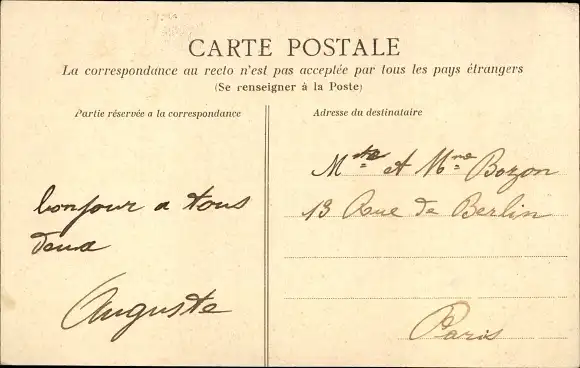 CARTE POSTALE
La correspondance au recto n'est pas acceptée par tous les pays étrangers
(Se renseigner à la Poste)
Partie réservée a la correspondance
Adresse du destinataire
bonjour a tous
deux
Auguste
Mte et Mme Bozon
13 Rue de Berlin
Paris